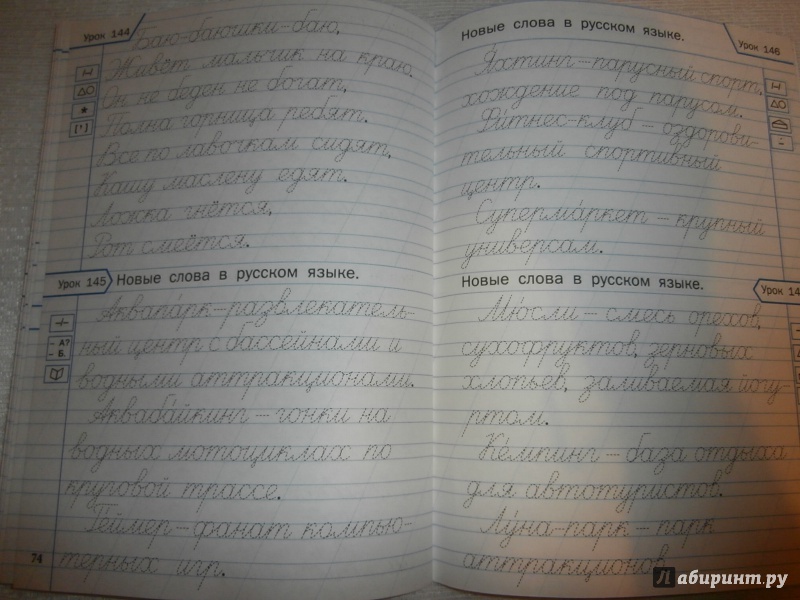 Урок 144
Баю-баюшки-баю,
Живёт мальчик на краю.
Он не беден не богат,
Полна горница ребят.
Все по лавочкам сидят,
Кашу маслену едят.
Ложка гнётся,
Рот смеётся.
Урок 145
Новые слова в русском языке.
Аквапа́рк–развлекатель-
ный центр с бассейнами и
водными аттракционами.
Акваба́йкинг – гонки на
водных мотоциклах по
круговой трассе.
Ге́ймер – фанат компью-
терных игр.
74
Новые слова в русском языке.
Урок 146
Я́хтинг – парусный спорт,
хождение под парусом.
Фи́тнес-клуб – оздорови-
тельный спортивный
центр.
Суперма́ркет – крупный
универсам.
Новые слова в русском языке.
Урок 14
Мю́сли – смесь орехов,
сухофруктов, зерновых
хлопьев, заливаемая йогу-
ртом.
Ке́мпинг – база отдыха
для автотуристов.
Лу́на-парк – парк
аттракционов.
Лабиринт.ру